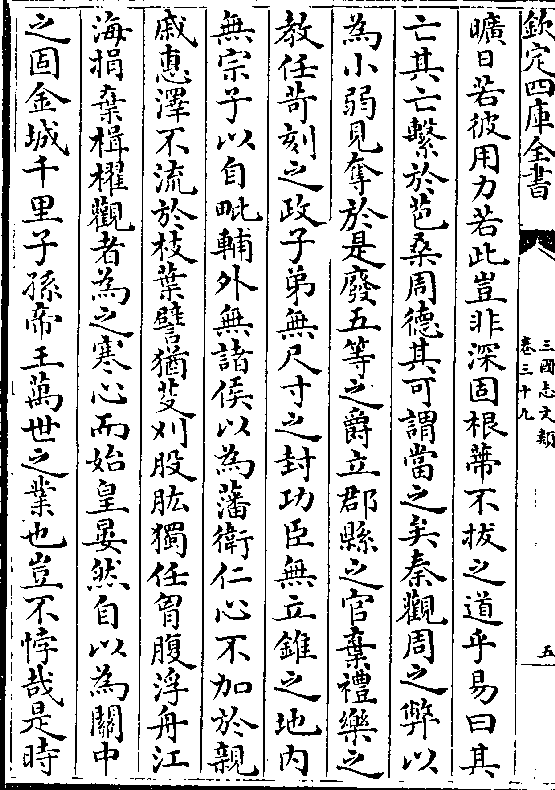 欽定四庫全書
三國志文類
卷三十九
五
曠日若彼用力若此豈非深固根蔕不拔之道乎易曰其
亡其亡繫於苞桑周德其可謂當之矣秦觀周之弊以
為小弱見奪於是廢五等之爵立郡縣之官棄禮樂之
教任苛刻之政子弟無尺寸之封功臣無立錐之地内
無宗子以自毗輔外無諸侯以為藩衛仁心不加於親
戚惠澤不流於枝葉譬猶芟刈股肱獨任胷腹浮舟江
海捐棄楫櫂觀者為之寒心而始皇晏然自以為關中
之固金城千里子孫帝王萬世之業也豈不悖哉是時